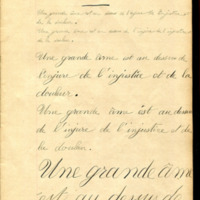 Une grande âme est au dessus de l'injure de l'injustice et de
la douleur.
Une grande âme est au dessus de l'injure de l'injustice et de
la douleur.
Une grande âme est au dessus de
l'injure de l'injustice et de la
douleur.
Une grande âme est au dessus
de l'injure de l'injustice et de
la douleur.
Une grande âme
est au dessus de